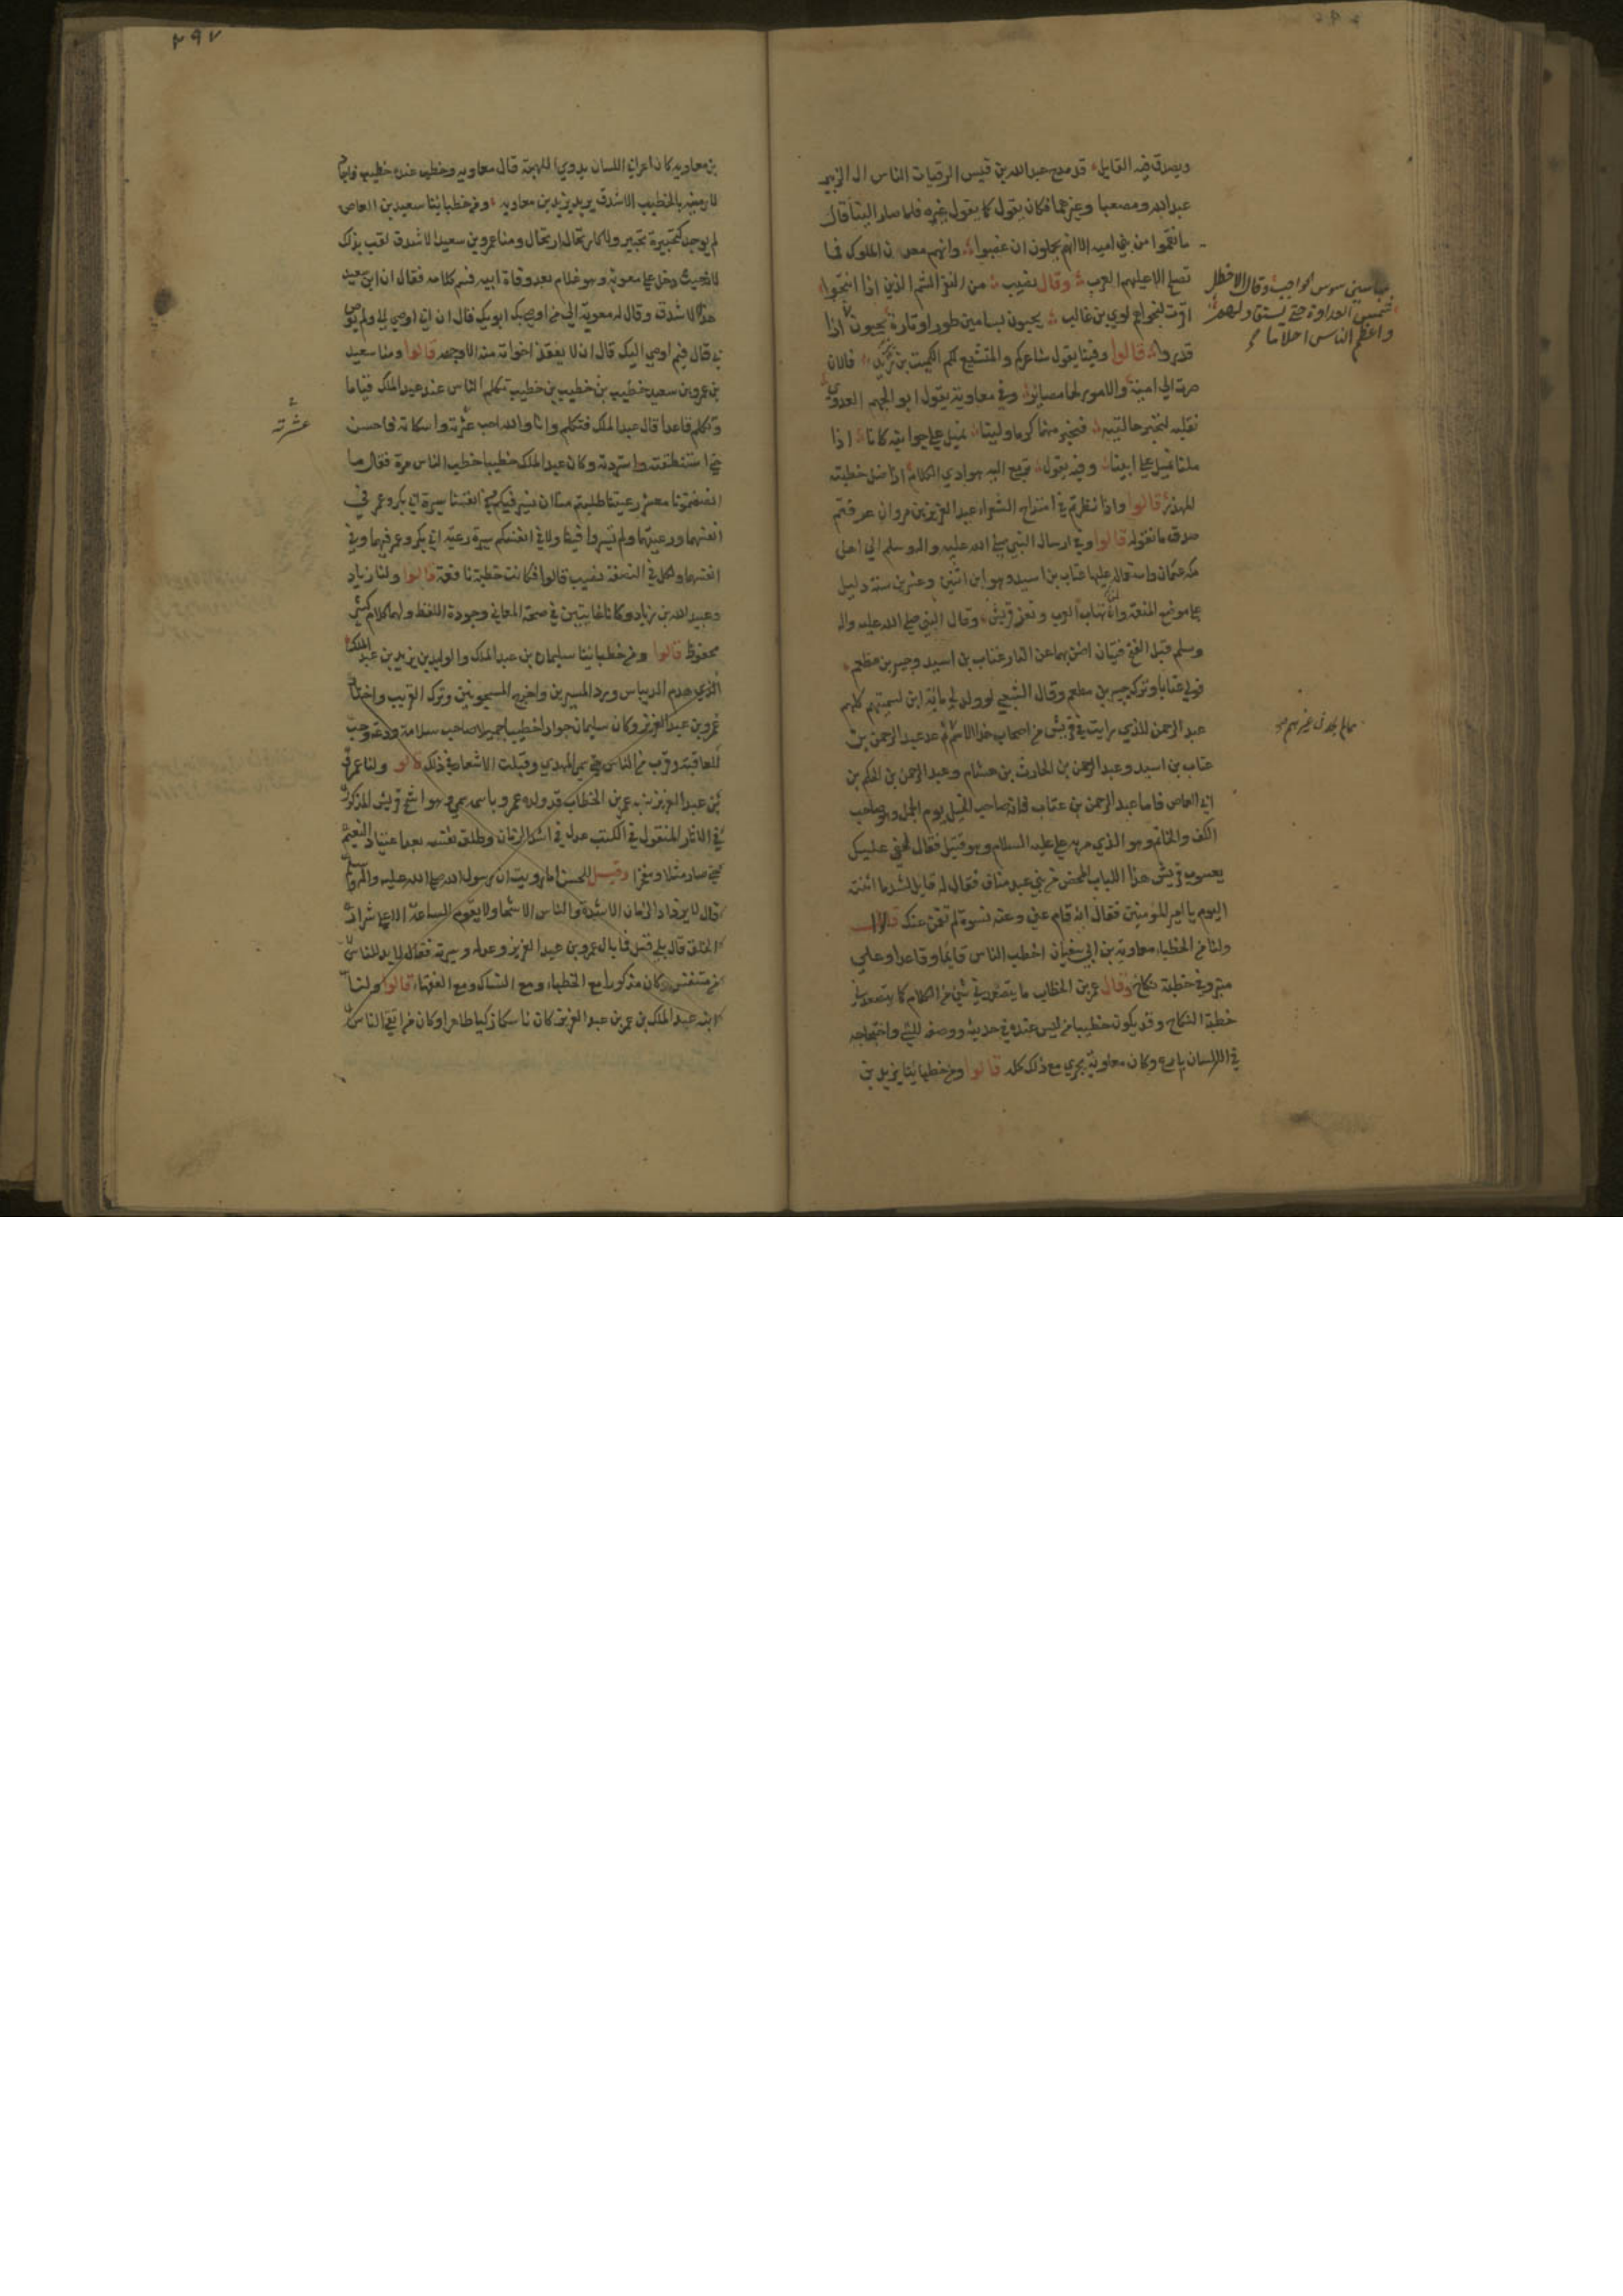 ويصدق فيه القايل قد مدح عبد الله بن قيس الرقيات الناس ال الزبير
عبد الله ومصعبا وغيرهما فكان يقول كما يقول غيره فلما صار الينا قال
ما نقموا من بني اميه الا انهم يحلمون ان غضبوا وانهم معدن الملوك فما
تصلح الا عليهم العرب وقال نصيب من النفر الشم الذين اذا انتجوا
اقرت لنجواهم لوي بن غالب يحيون بسامين طورا وتارة يحيون
عباسين سوس الحواجب وقال الاخطل
شمس العداوة حتى يستقاد لهم
واعظم الناس احلاما اذا
قدروا قالوا وفينا يقول شاعركم والمتشيع لكم الكميت بن زيد فالان
صرت الى امية والامور لها مصاير وفي معاوية يقول ابو الجهم العدوي
نقلبه لنخبر حالتيه فنخبر منهما كرما ولينا نميل على جوانبه كانا اذا
ملنا نميل على ابينا وفيه يقول تريع اليه هوادي الكلام اذا ضل خطبته
المهذر قالوا واذا نظرتم في امتداح الشعراء عبد العزيز بن مروان عرفتم
صدق ما نقوله قالوا وفي ارسال النبي صلى الله عليه واله وسلم الى اهل
مكه عثمان واستعماله عليها عتاب بن اسيد وهو ابن اثنين وعشرين سنة دليل
على موضع المنعة وان تهاب العرب وتعز قريش وقال النبي صلى الله عليه واله
وسلم قبل الفتح فتيان اضن بهما عن النار عتاب بن اسيد وجبير بن مطعم
فولى عتابا وترك جبير بن مطعم وقال الشعبي لو ولد لي مائة ابن لسميتهم كلهم
عبد الرحمن للذي رايت في قريش من اصحاب هذا الاسم ثم عد عبد الرحمن بن
عتاب بن اسيد وعبد الرحمن بن الحارث بن هشام وعبد الرحمن بن الحكم بن
ابي العاص فاما عبد الرحمن بن عتاب فانه صاحب الخيل يوم الجمل وهو صاحب
الكف والخاتم وهو الذي مر به علي عليه السلام وهو قتيل فقال لهفي عليك
يعسوب قريش هذا اللباب المحض من بني عبد مناف فقال له قايل لشد ما اثنيت
اليوم يا امير المومنين فقال انه قام عني وعنه نسوة لم تقمن عنك قالوا
ولنا من الخطباء معاوية بن ابي سفيان اخطب الناس قايما وقاعدا وعلى
منبر وفي خطبة نكاح وقال عمر بن الخطاب ما يتصعدني شي من الكلام كما يتصعدني
خطبة النكاح وقد يكون خطيبا من ليس عنده في حديثه ووصفه للشي واحتجاجه
في الامر لسان بارع وكان معاوية يجري مع ذلك كله قالوا ومن خطبائنا يزيد بن
۲۹۷
بن معاويه كان اعرابي اللسان بدوي اللهجة قال معاويه وخطب عنده خطيب فاجاد
لارمينه بالخطيب الاشدق يريد يزيد بن معاويه ومن خطبائنا سعيد بن العاص
لم يوجد كتحبيره تحبير ولا كارتجاله ارتجال ومنا عمرو بن سعيد الاشدق لقب بذلك
لانه حيث دخل على معوية وهو غلام بعد وفاة ابيه فسمع كلامه فقال ان ابن سعيد
هذا الاشدق وقال له معوية الى من اوصى بك ابوك قال ان ابي اوصى الي ولم يوص
بي قال فبم اوصى اليك قال ان لا يفقد اخوانه منه الا وجهه قالوا ومنا سعيد
بن عمرو بن سعيد خطيب بن خطيب بن خطيب تكلم الناس عند عبد الملك قياما
وتكلم قاعدا قال عبد الملك فتكلم وانا والله احب عثرته واسكاته فاحسن
حتى استنطقته واستزدته وكان عبد الملك خطيبا خطب الناس مرة فقال ما
انصفتمونا معشر رعيتنا طلبتم منا ان نسير فيكم وفي انفسنا سيرة ابي بكر وعمر في
انفسهما ورعيتهما ولم تسيروا فينا ولا في انفسكم سيرة رعية ابي بكر وعمر فيهما وفي
انفسهما ولكل في النصفة نصيب قالوا فكانت خطبة نافعة قالوا ولنا زياد
وعبيد الله بن زياد وكانا غايتين في صحة المعاني وجودة اللفظ ولهما كلام كثير
محفوظ قالوا ومن خطبائنا سليمان بن عبد الملك والوليد بن يزيد بن عبد الملك
الذي هدم الديماس ورد المسيرين واخرج المسجونين وترك القريب واختار
عمرو بن عبد العزيز وكان سليمان جوادا خطيبا جميلا صاحب سلامة ودعة وحب
للعافية وقرب من الناس حتى سمي المهدي وقيلت الاشعار في ذلك قالوا ولنا عمر
بن عبد العزيز شبه عمر بن الخطاب قد ولده عمر وباسمه سمي وهو اشج قريش المذكور
في الاثار المنقول في الكتب عدل في اشد الزمان وظلف نفسه بعد اعتياد النعيم
حتى صار مثلا ومفخرا وقيل للحسن اما رويت ان رسول الله صلى الله عليه واله وسلم
قال لا يزداد الزمان الا شدة والناس الا شحا ولا تقوم الساعة الا على شرار
الخلق قال بلى قيل فما بال عمر بن عبد العزيز وعدله وسيرته فقال لا بد للناس
من متنفس وكان مذكورا مع الخطباء ومع النساك ومع الفقهاء قالوا ولنا
ابنه عبد الملك بن عمر بن عبد العزيز كان ناسكا زكيا طاهرا وكان من اتقى الناس